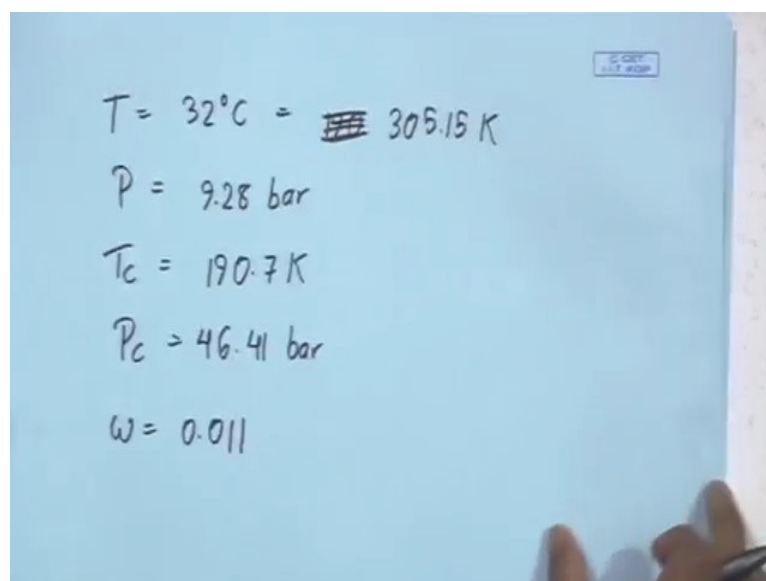 T = 32°C = 305.15 K
P = 9.28 bar
Tc = 190.7 K
Pc = 46.41 bar
ω = 0.011